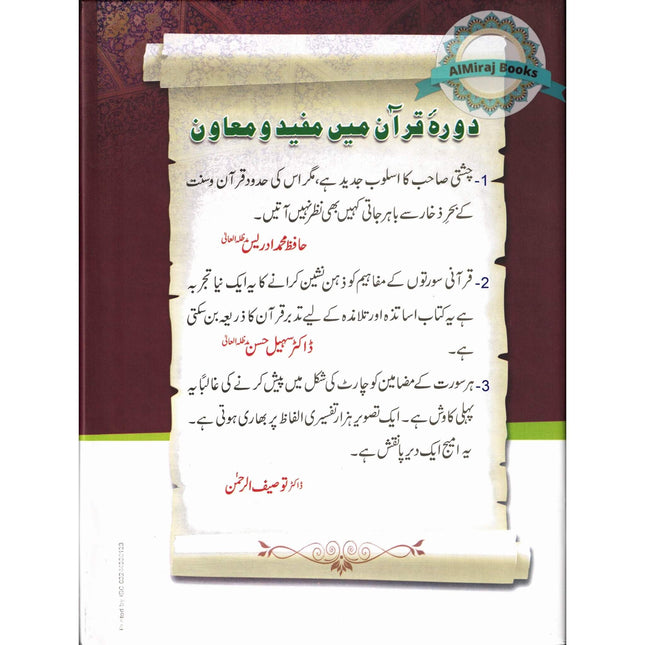 AlMiraj Books
دورۂ قرآن میں مفید و معاون
1- چشتی صاحب کا اسلوب جدید ہے، مگر اس کی حدود قرآن وسنت
کے بحرِ ذخار سے باہر جاتی کہیں بھی نظر نہیں آتیں۔
حافظ محمد ادریس مدظلہ العالی
2- قرآنی سورتوں کے مفاہیم کو ذہن نشین کرانے کا یہ ایک نیا تجربہ
ہے یہ کتاب اساتذہ اور تلامذہ کے لیے تدبر قرآن کا ذریعہ بن سکتی
ہے۔ ڈاکٹر سہیل حسن مدظلہ العالی
3- ہر سورت کے مضامین کو چارٹ کی شکل میں پیش کرنے کی غالباً یہ
پہلی کاوش ہے۔ ایک تصویر ہزار تفسیری الفاظ پر بھاری ہوتی ہے۔
یہ امیج ایک دیرپا نقش ہے۔
ڈاکٹر توصیف الرحمٰن